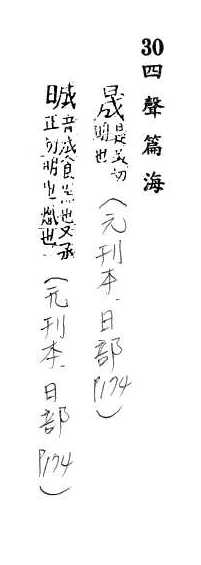 30四聲篇海
晟是切明也(元刊本.日部P174)
晠音成食也又承正切明也熾也(元刊本.日部P174)